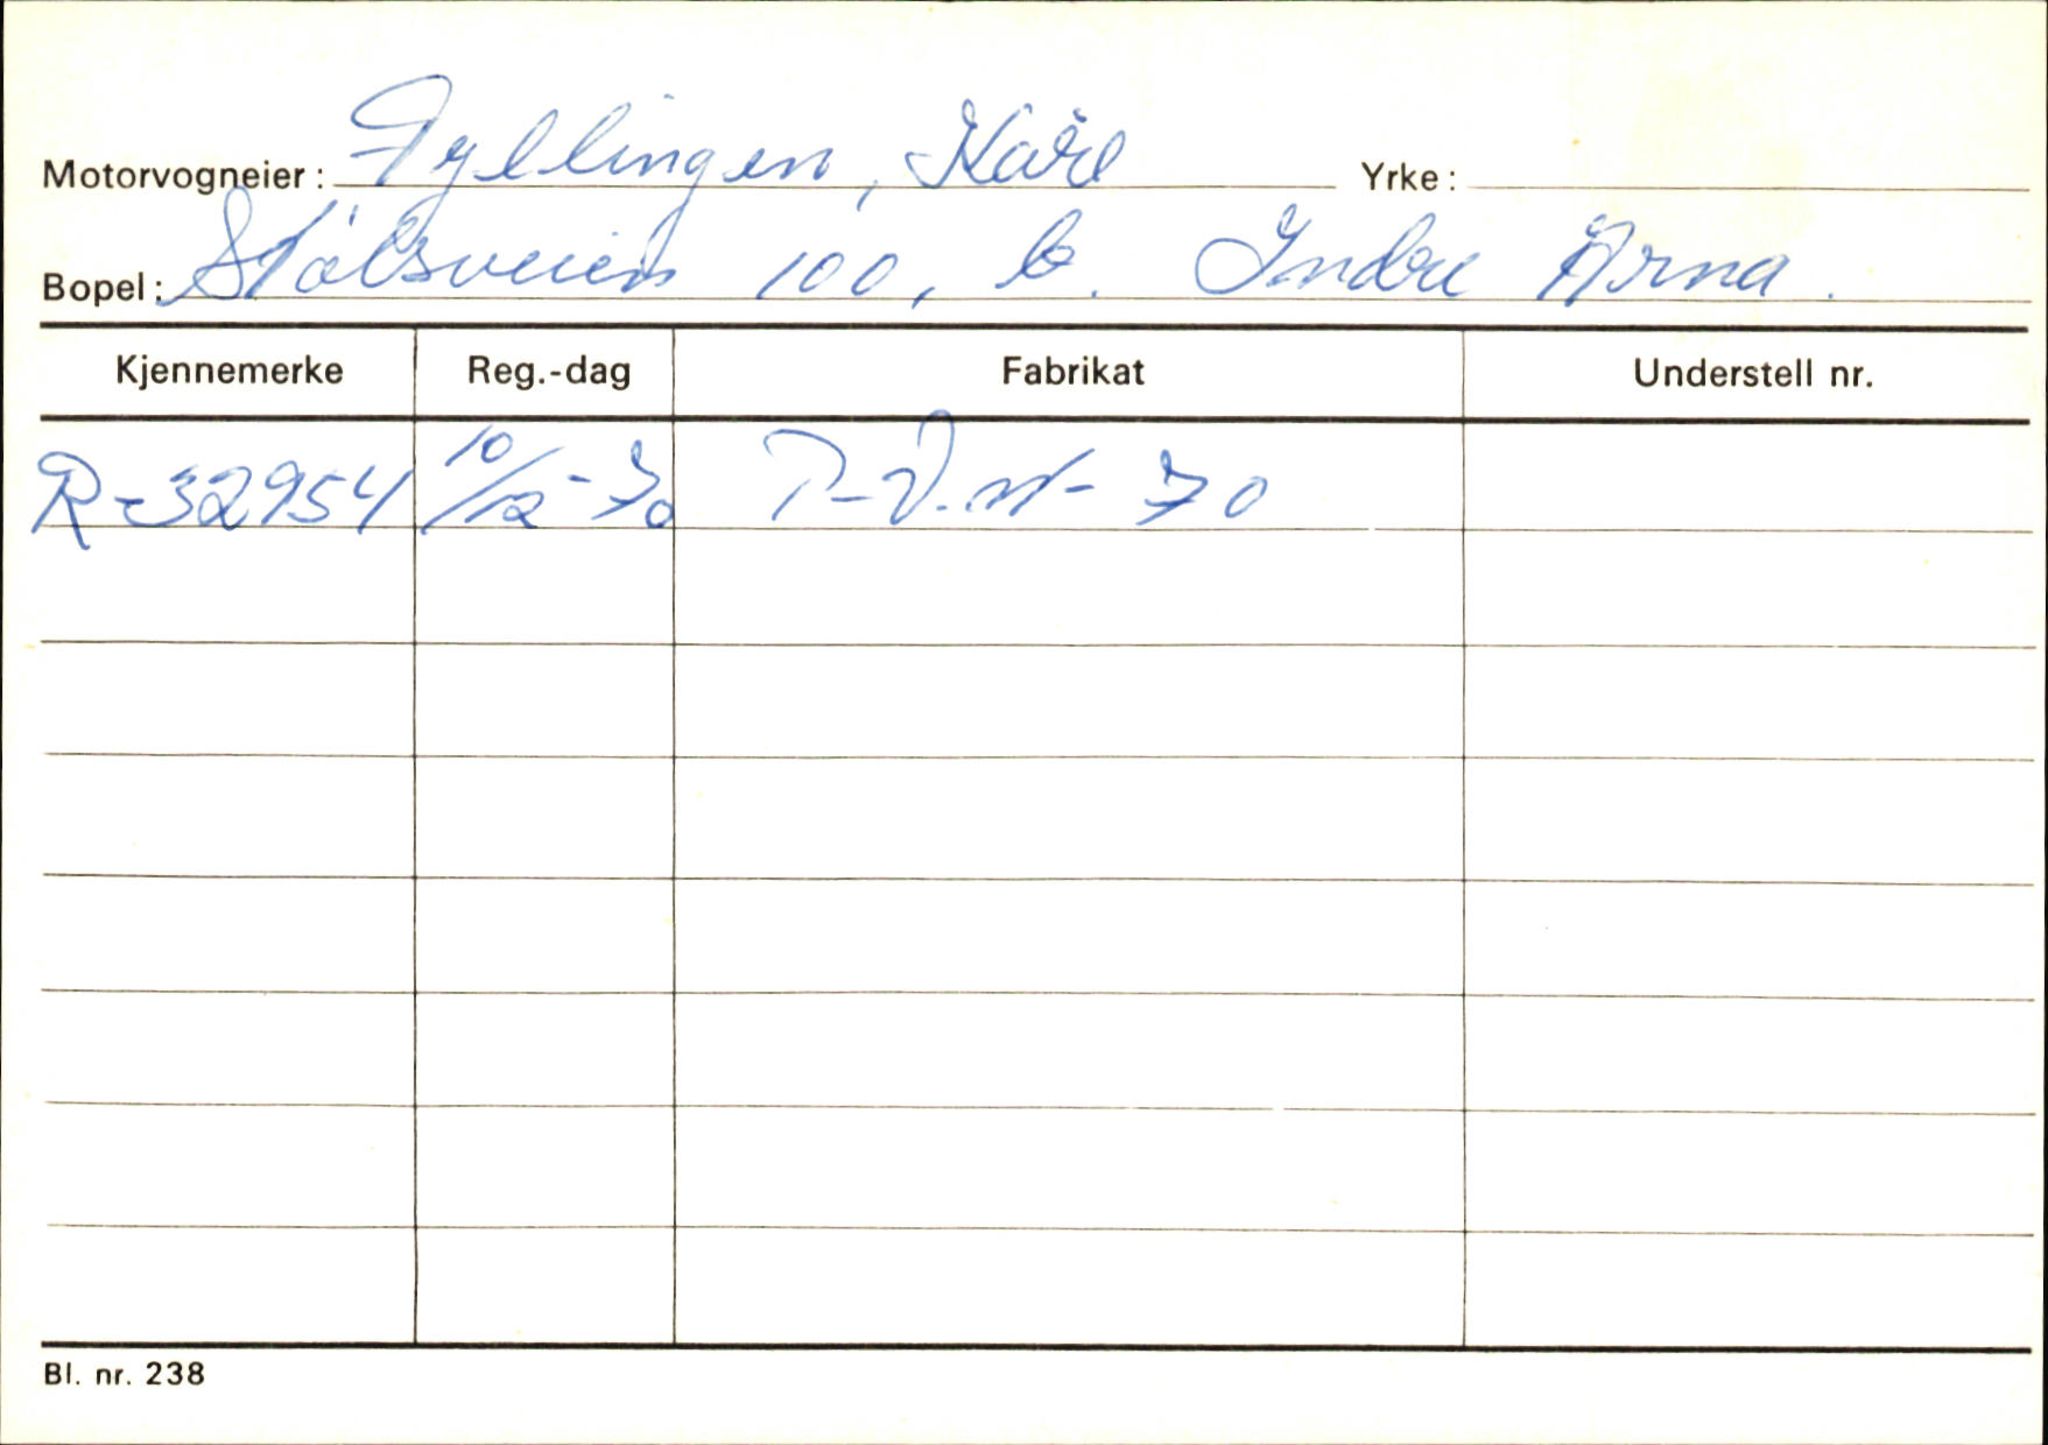 Motorvogneier: Fyllingen, Kåre Yrke:
Bopel: Stølsveien 100, b. Indre Arna.
Kjennemerke Reg.-dag Fabrikat Understell nr.
R-32954 10/12-70 70
Bl. nr. 238